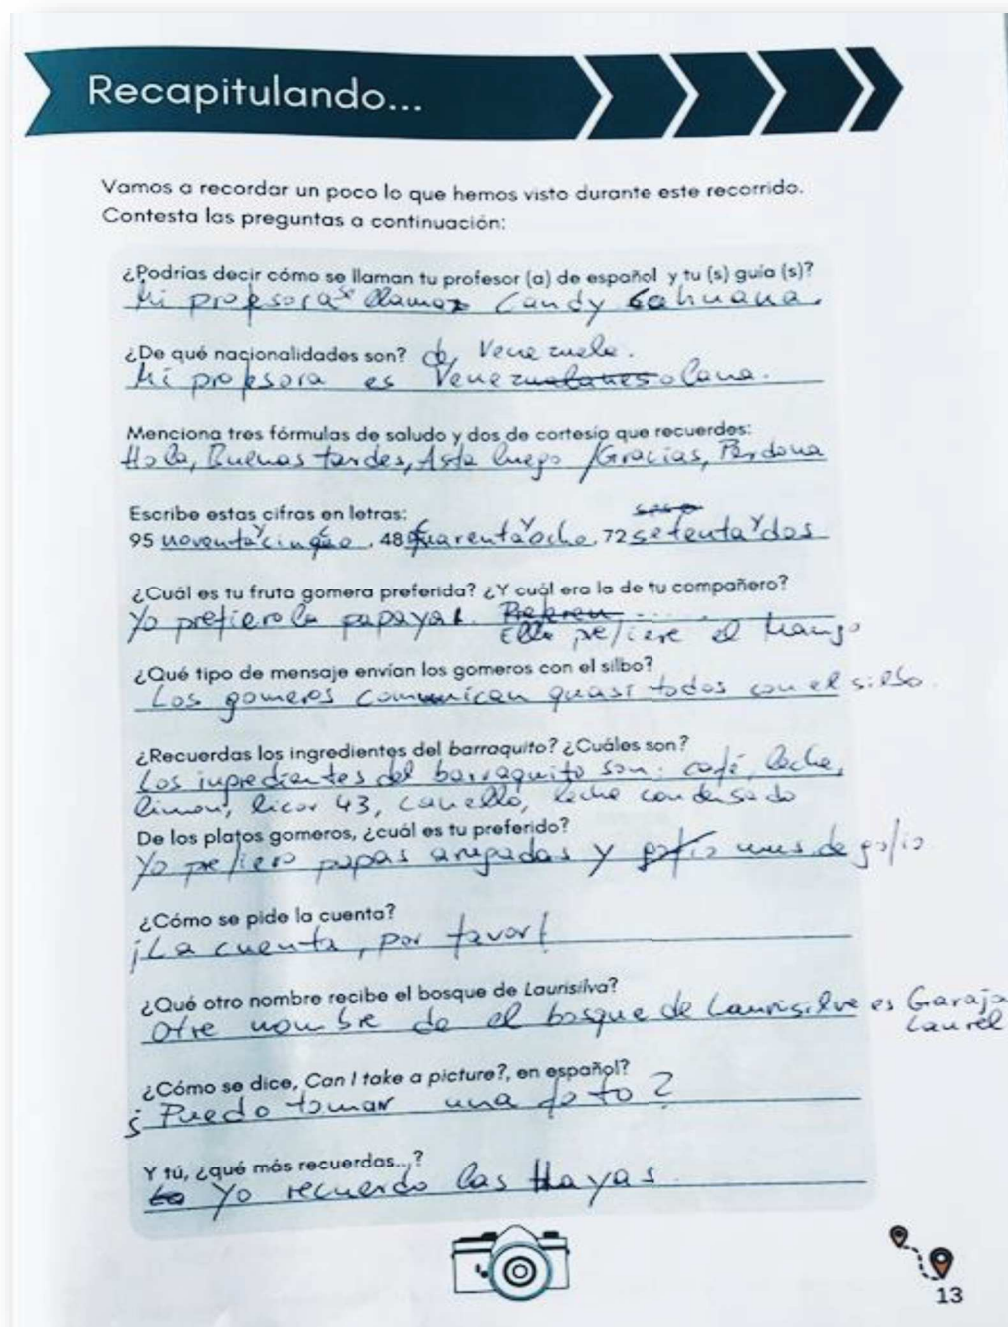 Recapitulando...
Vamos a recordar un poco lo que hemos visto durante este recorrido.
Contesta las preguntas a continuación:
¿Podrías decir cómo se llaman tu profesor (a) de español y tu (s) guía (s)?
Mi profesora se llama Candy Cahuana.
¿De qué nacionalidades son? de Venezuela.
Mi profesora es Venezolana.
Menciona tres fórmulas de saludo y dos de cortesía que recuerdes:
Hola, Buenas tardes, Asta luego / Gracias, Perdona
Escribe estas cifras en letras:
95 noventa y cinco, 48 cuarenta y ocho, 72 setenta y dos
¿Cuál es tu fruta gomera preferida? ¿Y cuál era la de tu compañero?
Yo prefiero la papaya.
Ella prefiere el mango
¿Qué tipo de mensaje envían los gomeros con el silbo?
Los gomeros comunican quasi todos con el silbo.
¿Recuerdas los ingredientes del barraquito? ¿Cuáles son?
Los ingredientes del barraquito son: café, leche,
limon, licor 43, canella, leche condensado
De los platos gomeros, ¿cuál es tu preferido?
Yo prefiero papas arugadas y mus de gofio
¿Cómo se pide la cuenta?
¡La cuenta, por favor!
¿Qué otro nombre recibe el bosque de Laurisilva?
Otre nombre de el bosque de Laurisilve es Garajo
Laurel
¿Cómo se dice, Can I take a picture?, en español?
¿Puedo tomar una foto?
Y tú, ¿qué más recuerdas...?
Yo recuerdo las Hayas
13